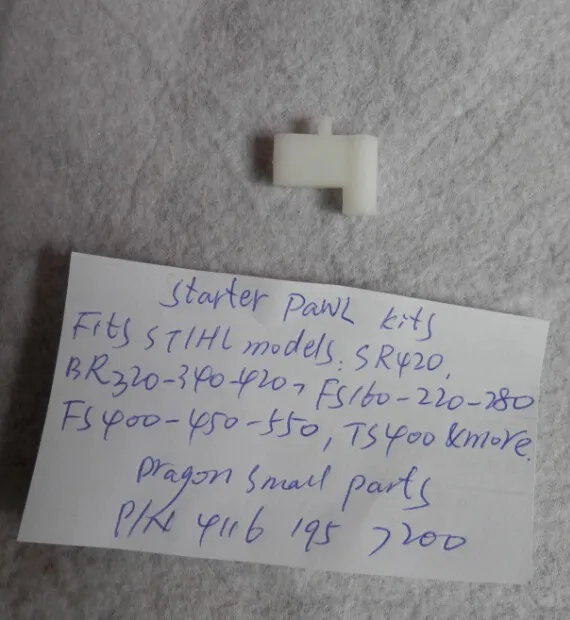 Starter Pawl kits
Fits STIHL models: SR420,
BR320-340-420, FS160-220-280
FS400-450-550, TS400 & more.
Dragon Small parts
P/N 4116 195 7200